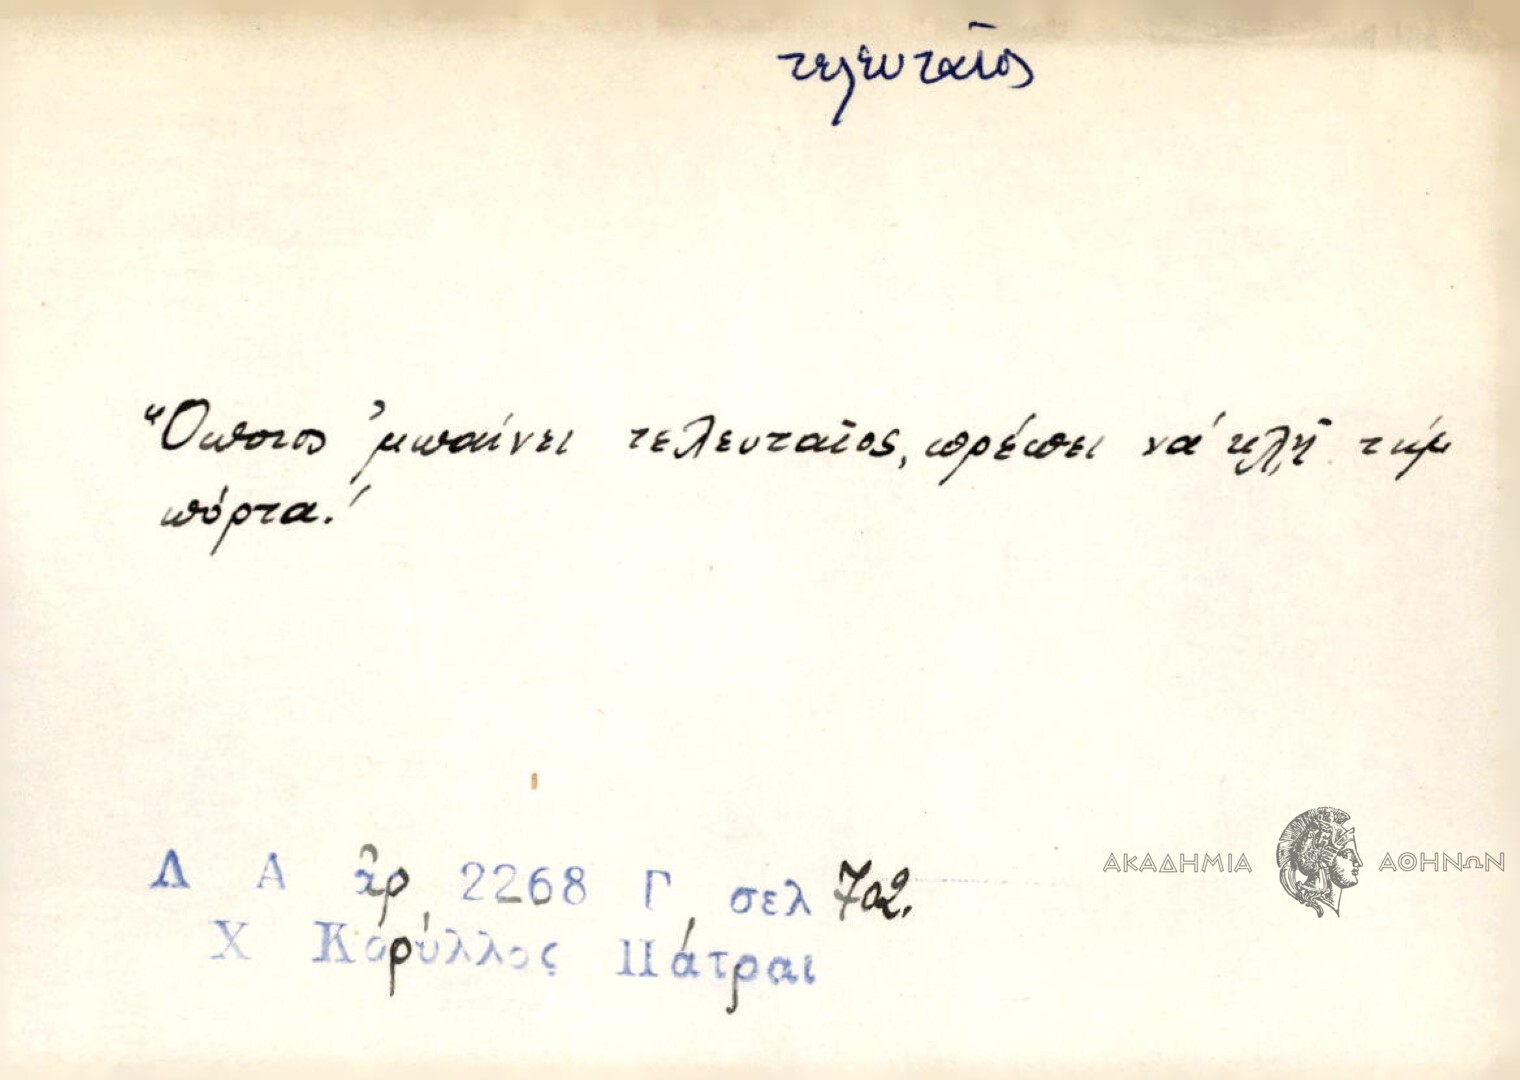 τελευταῖος
"Οποιος 'μπαίνει τελευταῖος, πρέπει νά κλῇ τήμ
πόρτα!
Λ Α ἀρ 2268 Γ, σελ 702.
Χ Κορύλλος Πάτραι
ΑΚΑΔΗΜΙΑ ΑΘΗΝΩΝ